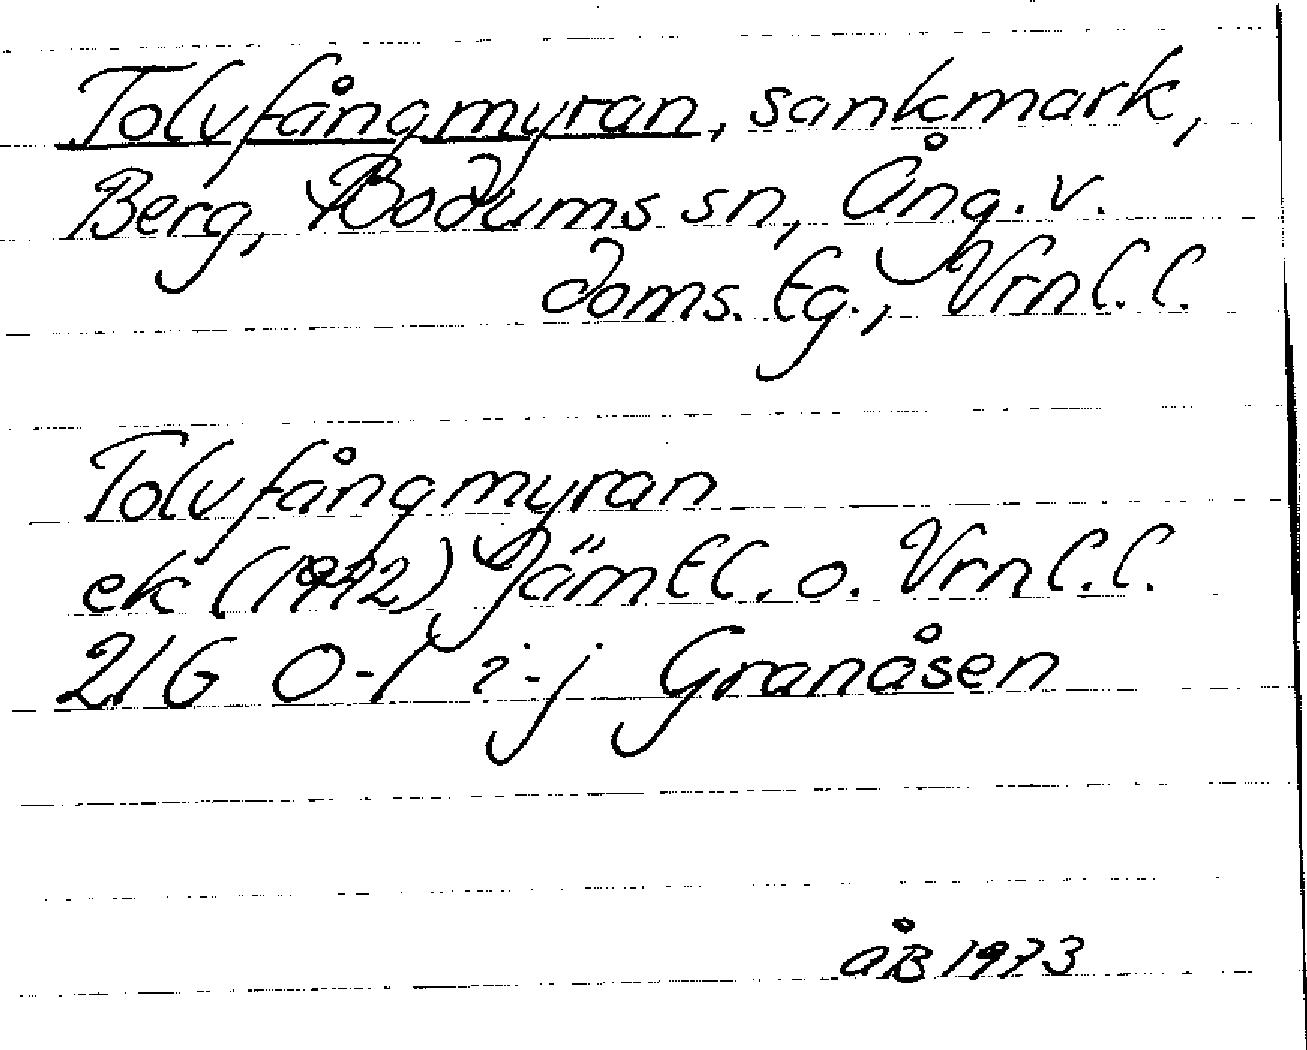 Tolvfångmyran, sankmark,
Berg, Bodums sn, Ång. v.
doms. tg., Vrnl. l.
Tolvfångmyran
ek (1972) Jämtl. o. Vrnl. l.
21G 0-1 i-j Granåsen
åB 1973